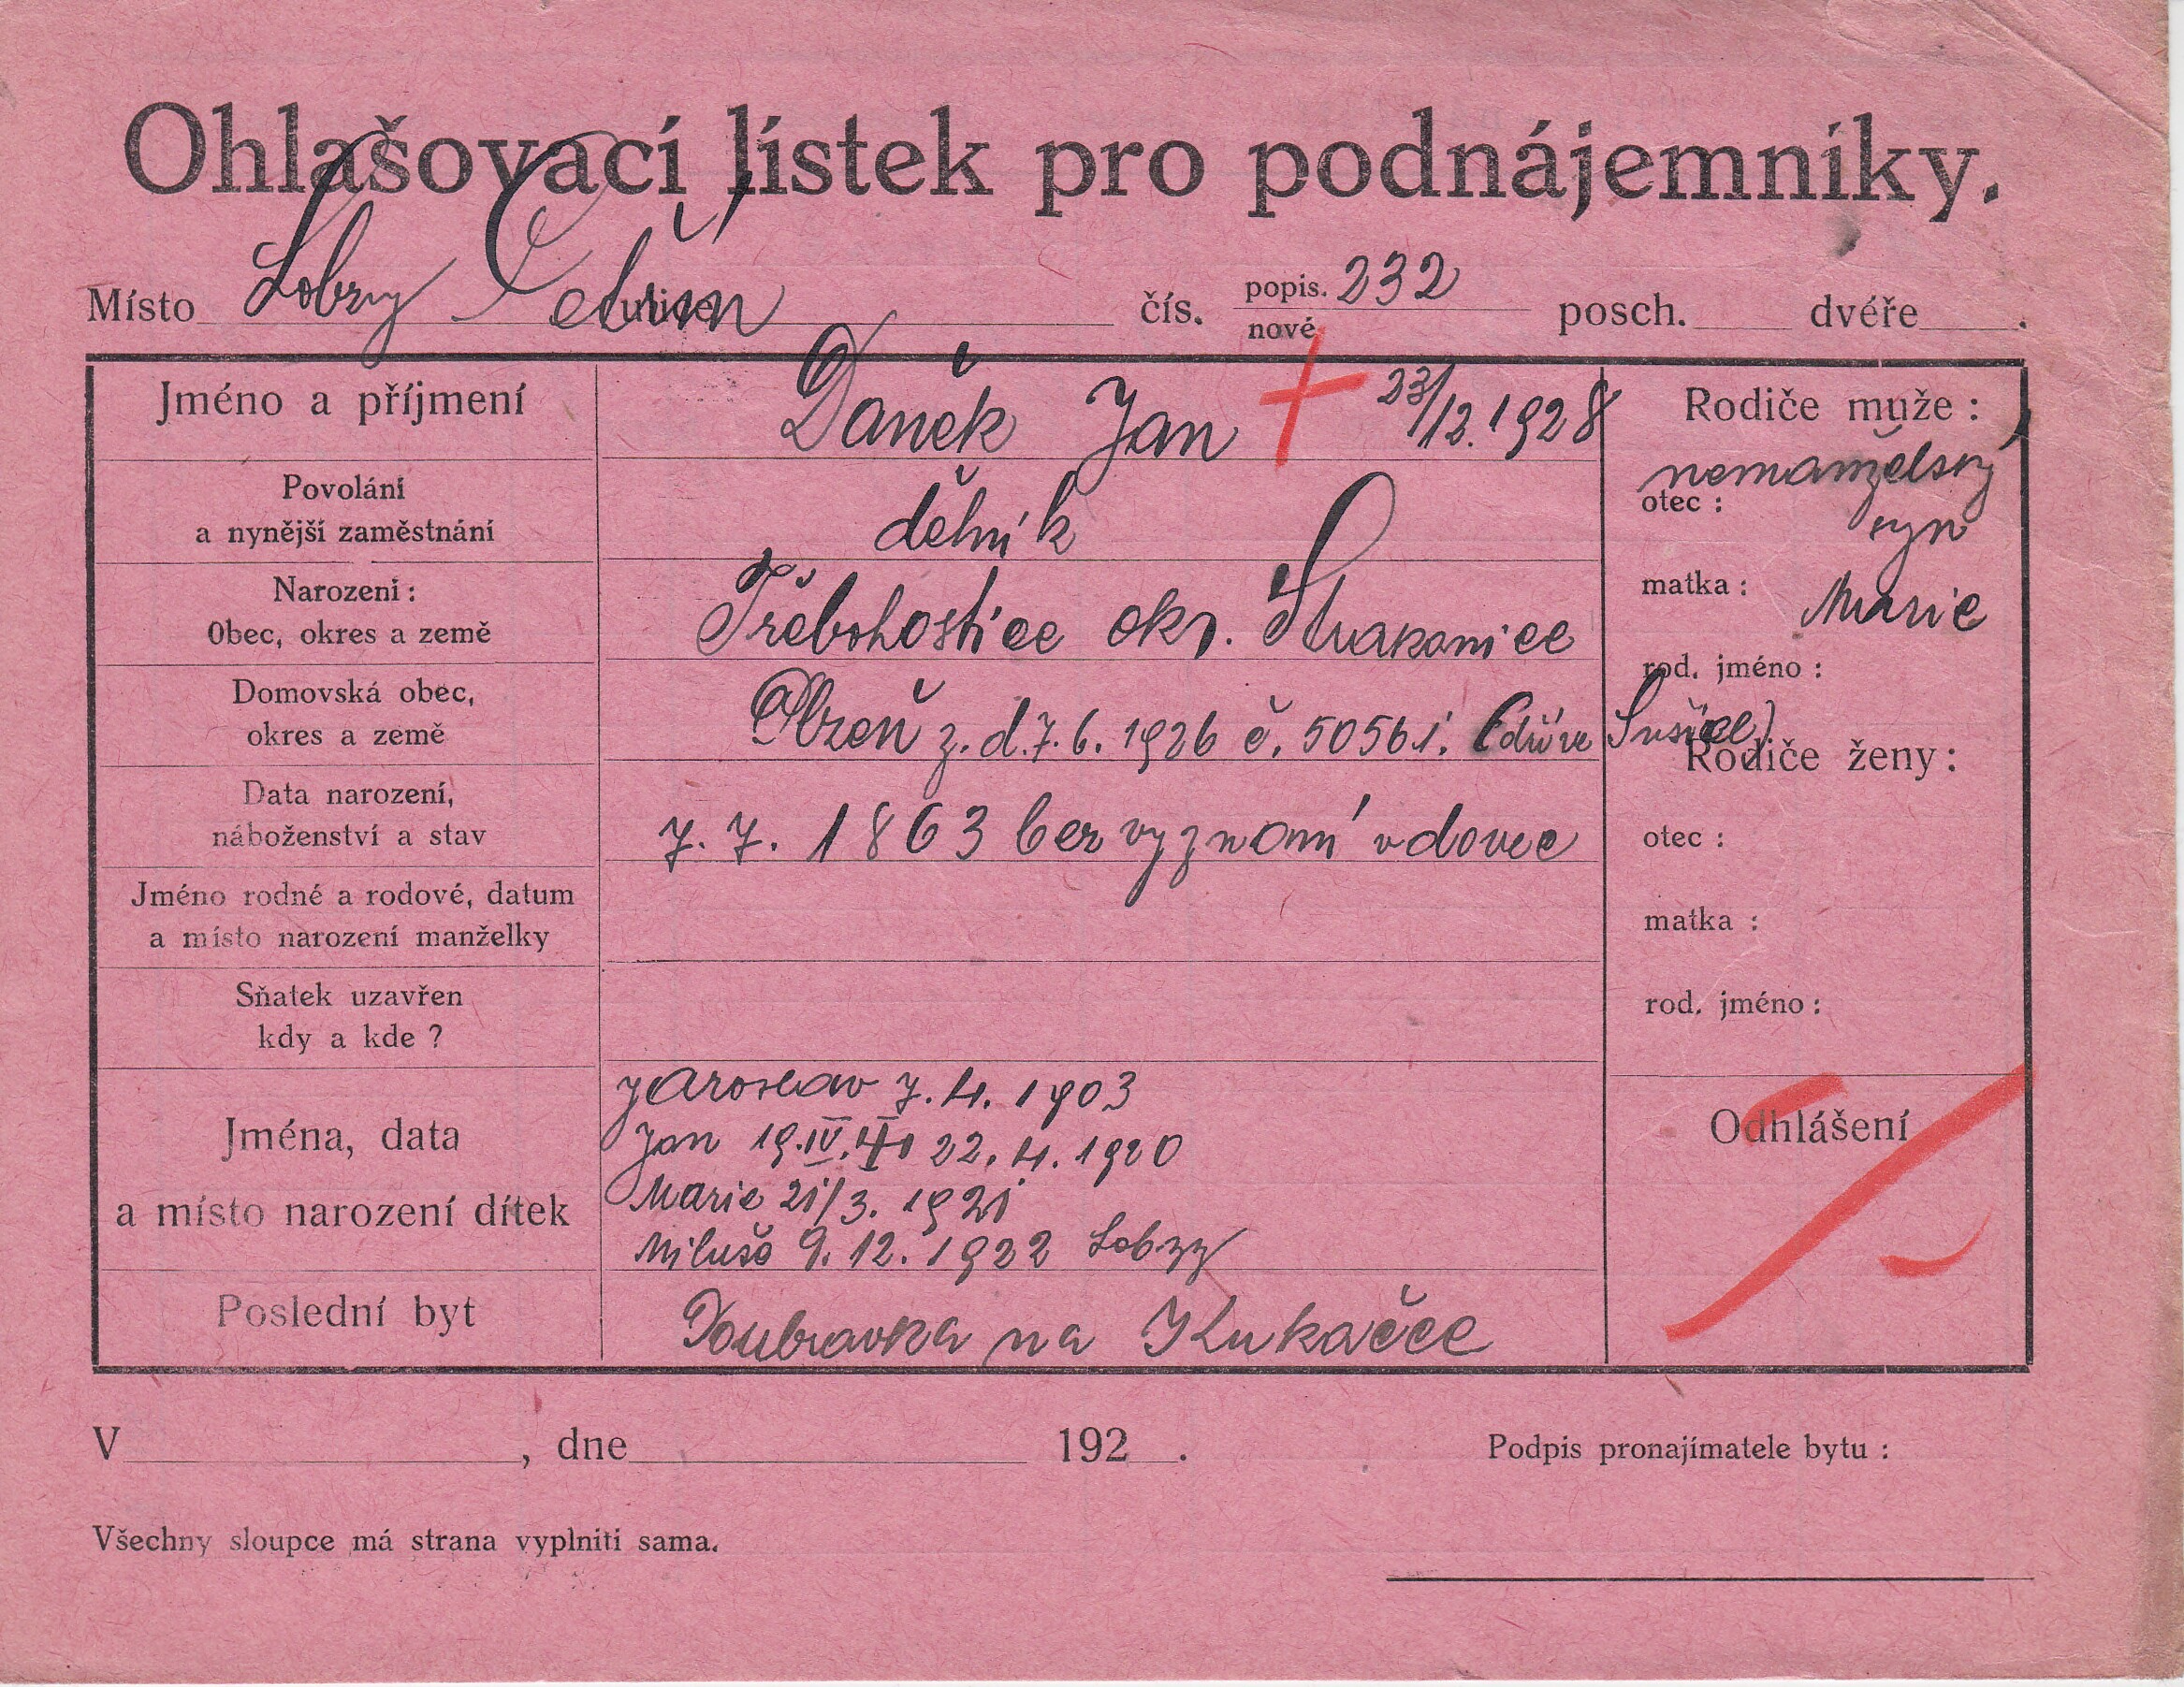 Ohlašovací lístek pro podnájemníky.
Místo Lobzy Čebrín ulice čís. popis. 232 nové posch. dvéře .
Jméno a příjmení Daněk Jan + 23/12. 1928
Povolání
a nynější zaměstnání dělník
Narození:
Obec, okres a země Třebohostice okr. Strakonice
Domovská obec,
okres a země Plzeň z. d. 7. 6. 1926 č. 50561. (dříve Sušice)
Data narození,
náboženství a stav 7. 7. 1863 bez vyznání vdovec
Jméno rodné a rodové, datum
a místo narození manželky
Sňatek uzavřen
kdy a kde ?
Jména, data
a místo narození dítek
Jaroslav 7. 4. 1903
Jan 19. IV. 22. 4. 1920
Marie 21/3. 1921
Miluše 9. 12. 1922 Lobzy
Poslední byt Doubravka na Kukačce
Rodiče muže:
nemanželský
otec: syn
matka: Marie
rod. jméno:
Rodiče ženy:
otec:
matka:
rod. jméno:
Odhlášení
V , dne 192 .
Podpis pronajímatele bytu:
Všechny sloupce má strana vyplniti sama.